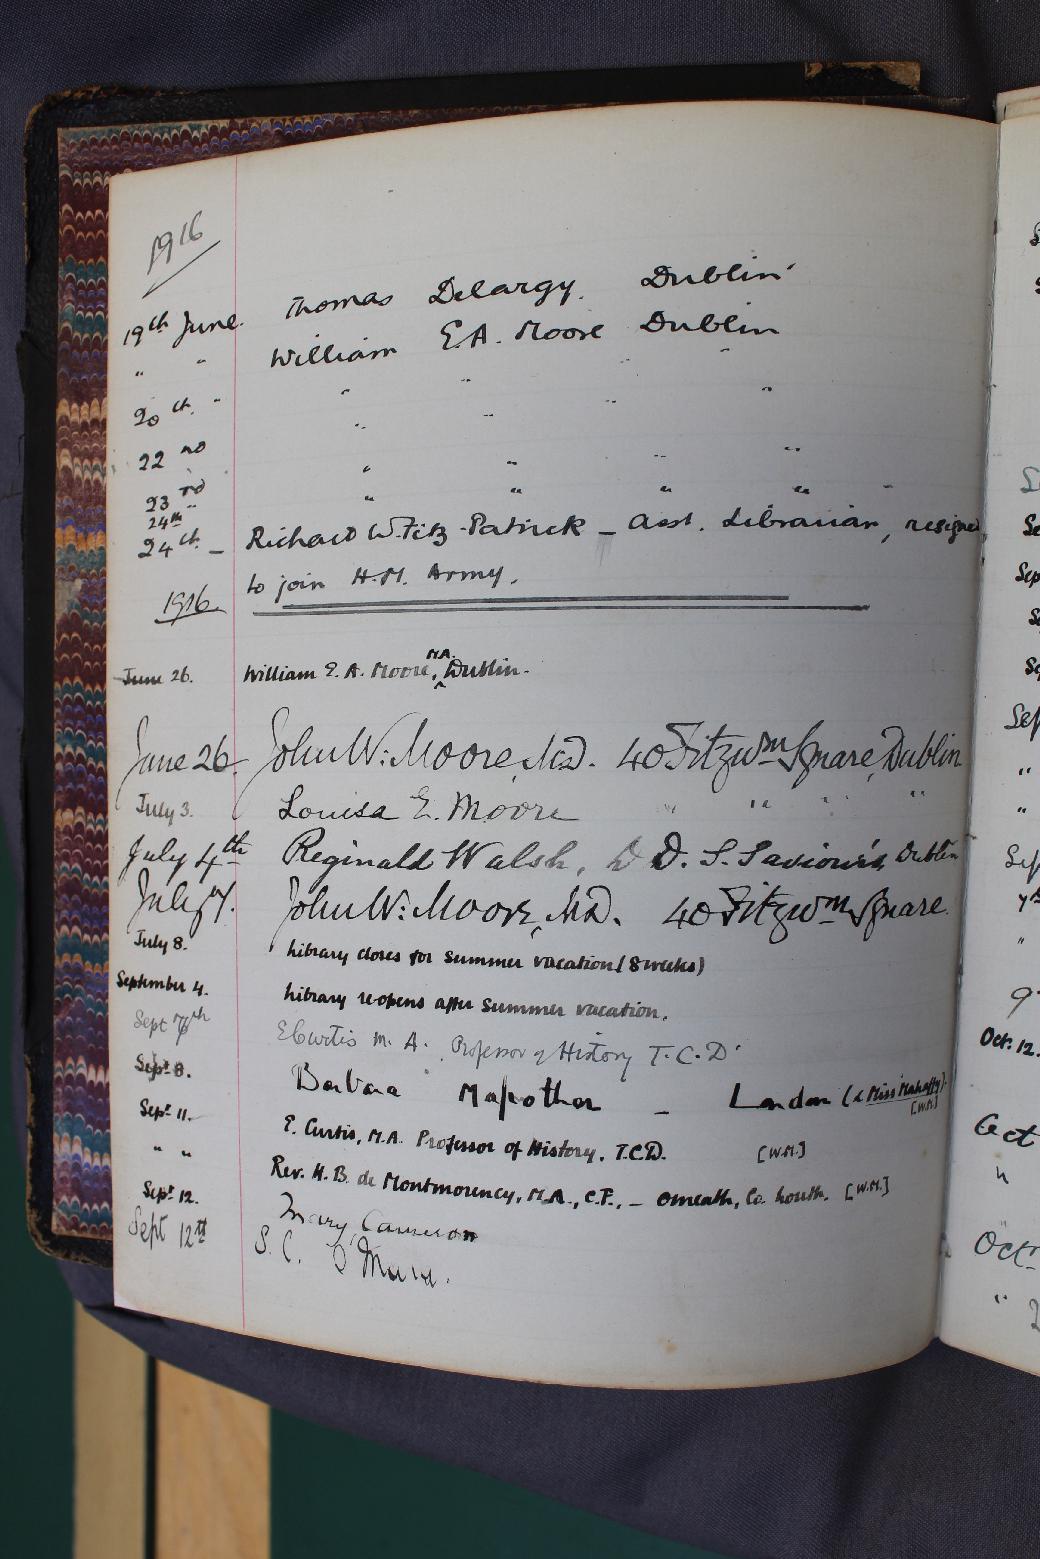 1916
19th June. Thomas Delargy. Dublin
" " William E.A. Moore Dublin
20th " " " " "
22nd " " " "
23rd " " " "
24th " " " " " "
24th – Richard W. Fitz-Patrick – Asst. Librarian, resigned
to join H.M. Army.
1916.
June 26. William E. A. Moore, M.A. Dublin.
June 26 John W: Moore, M.D. 40 Fitzwm Square, Dublin
July 3. Louisa E. Moore " " " "
July 4th Reginald Walsh, D.D. S. Saviour's Dublin
July 7. John W: Moore, M.D. 40 Fitzwm Square
July 8. Library closes for summer vacation (8 weeks)
September 4. Library reopens after summer vacation.
Sept 7th E Curtis M. A. Professor of History T.C.D.
Sept. 8. Barbara Mapother – London (& Miss Mahaffy). [W.M.]
Sept. 11. E. Curtis, M.A. Professor of History, T.C.D. [W.M.]
" " Rev. H. B. de Montmorency, M.A., C.F., – Omeath, Co. Louth. [W.M.]
Sept. 12. Mary Cameron
Sept 12th S. C. O'Mara.
Oct. 12.
Oct
"
Oct